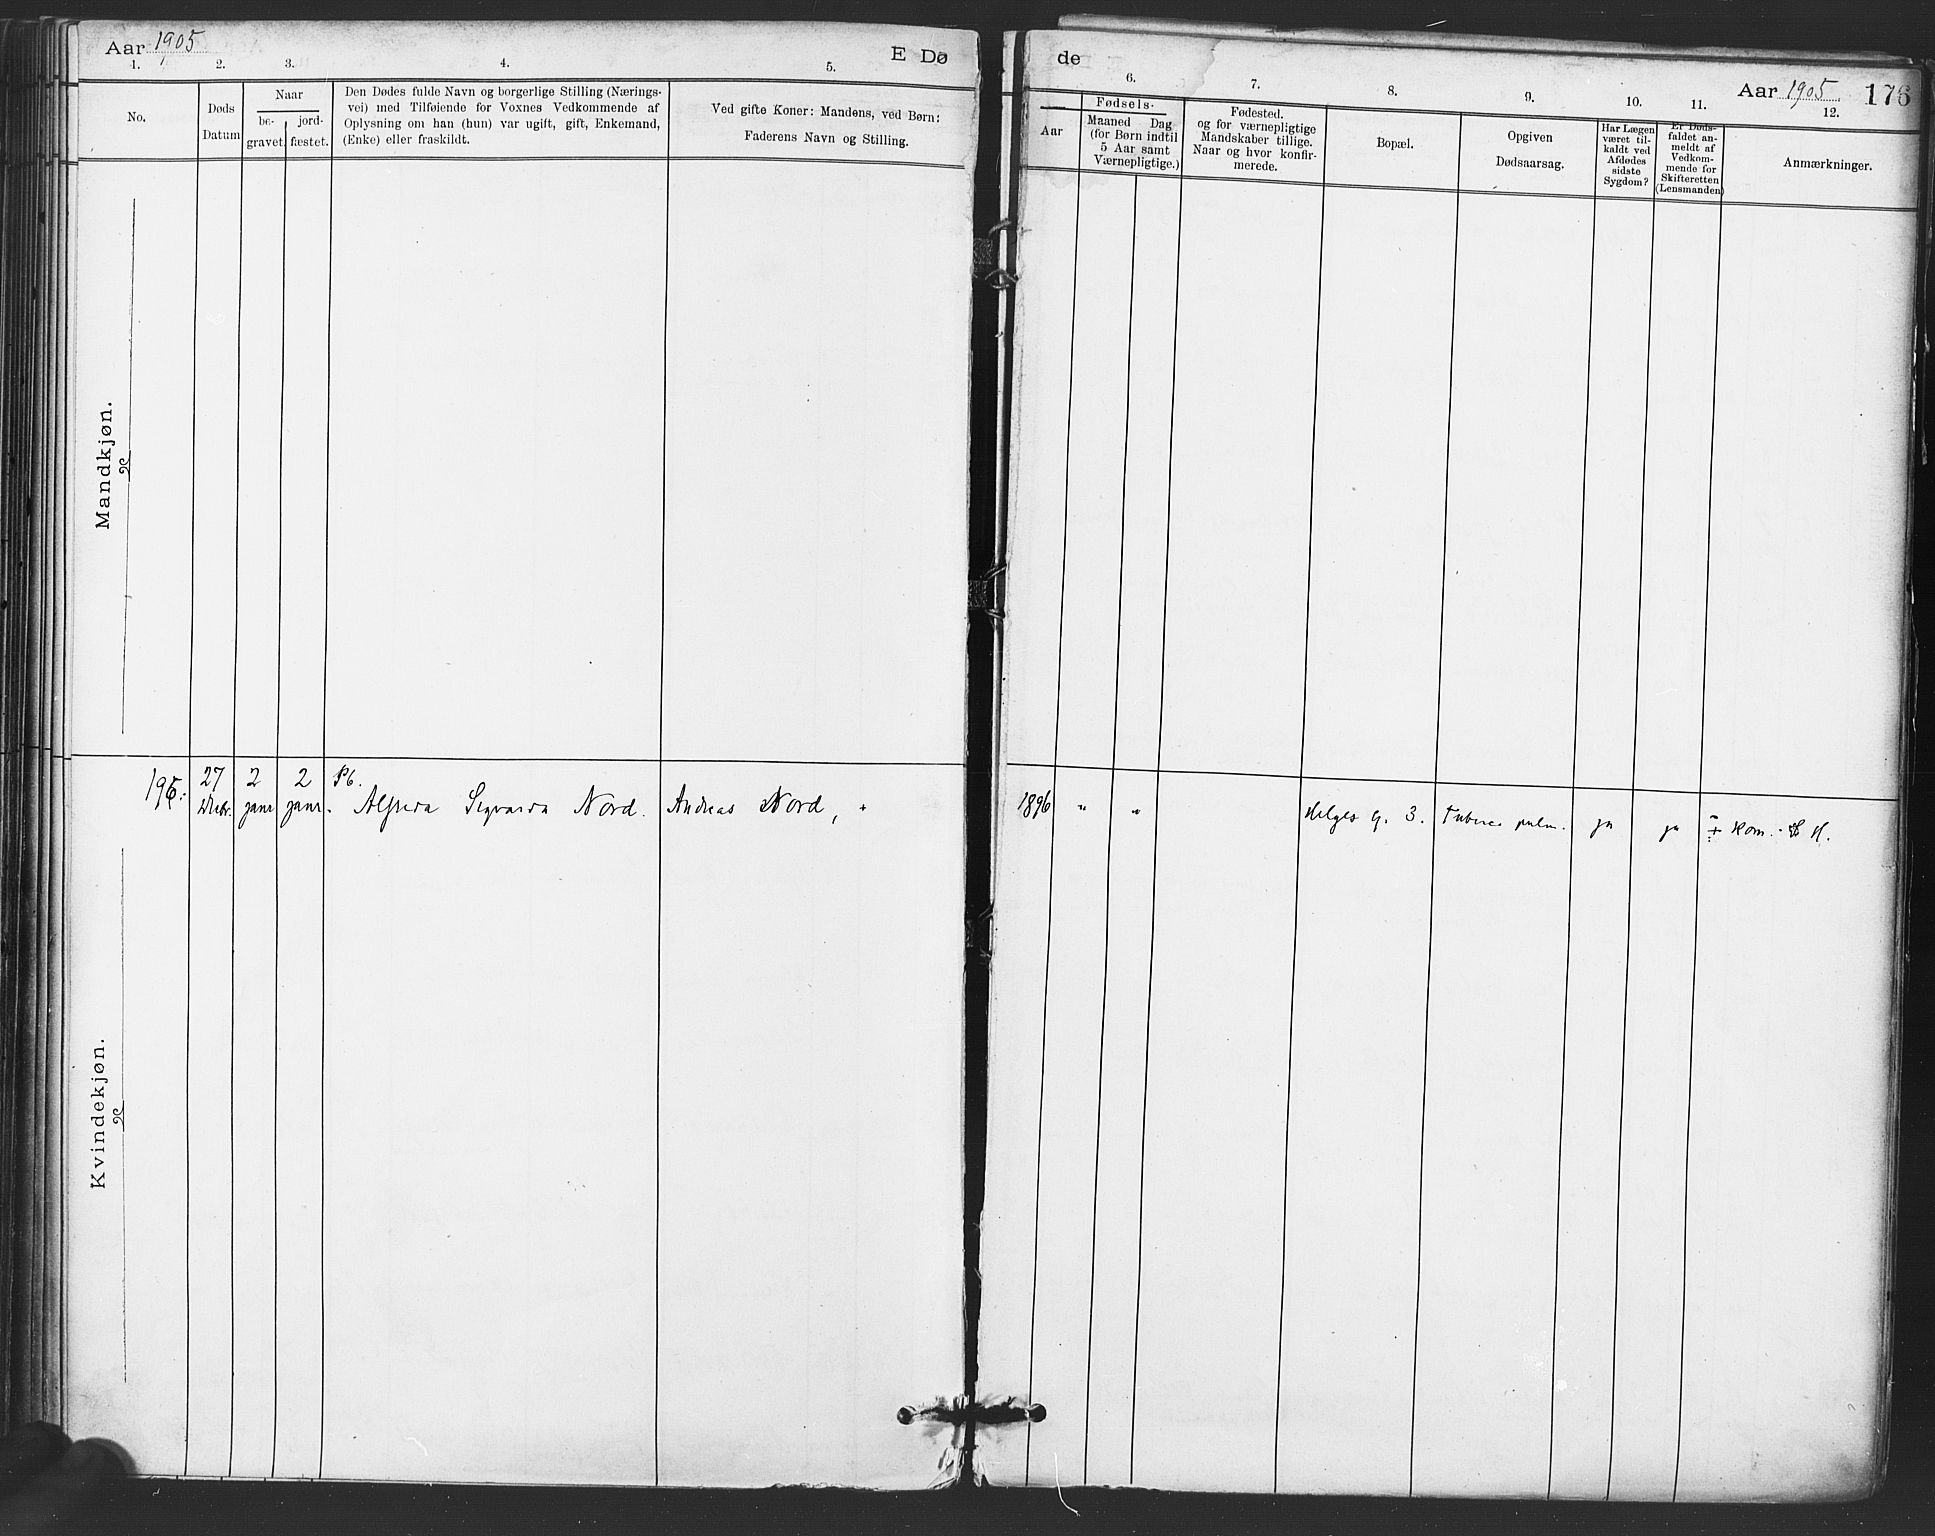 Aar 1905
E Dø
1. 2. 3. 4. 5.
No.
Døds
Datum
Naar
be-
gravet.
jord-
fæstet.
Den Dødes fulde Navn og borgerlige Stilling (Nærings-
vei) med Tilføiende for Voxnes Vedkommende af
Oplysning om han (hun) var ugift, gift, Enkemand,
(Enke) eller fraskildt.
Ved gifte Koner: Mandens, ved Børn:
Faderens Navn og Stilling.
Mandkjøn.
27 2 2
Janr Janr.
Alfreda Sigvarda Nord. Andreas Nord, "
Kvindekjøn.
de
Aar 1905 176
6. 7. 8. 9. 10. 11. 12.
Aar
Fødsels-
Maaned Dag
(for Børn indtil
5 Aar samt
Værnepligtige.)
Fødested.
og for værnepligtige
Mandskaber tillige.
Naar og hvor konfir-
merede.
Bopæl.
Opgiven
Dødsaarsag.
Har Lægen
været til-
kaldt ved
Afdødes
sidste
Sygdom?
Er Døds-
faldet an-
meldt af
Vedkom-
mende for
Skifteretten
(Lensmanden)
Anmærkninger.
1896 " " Helges g. 3. Tuberc. pulm. ja ja